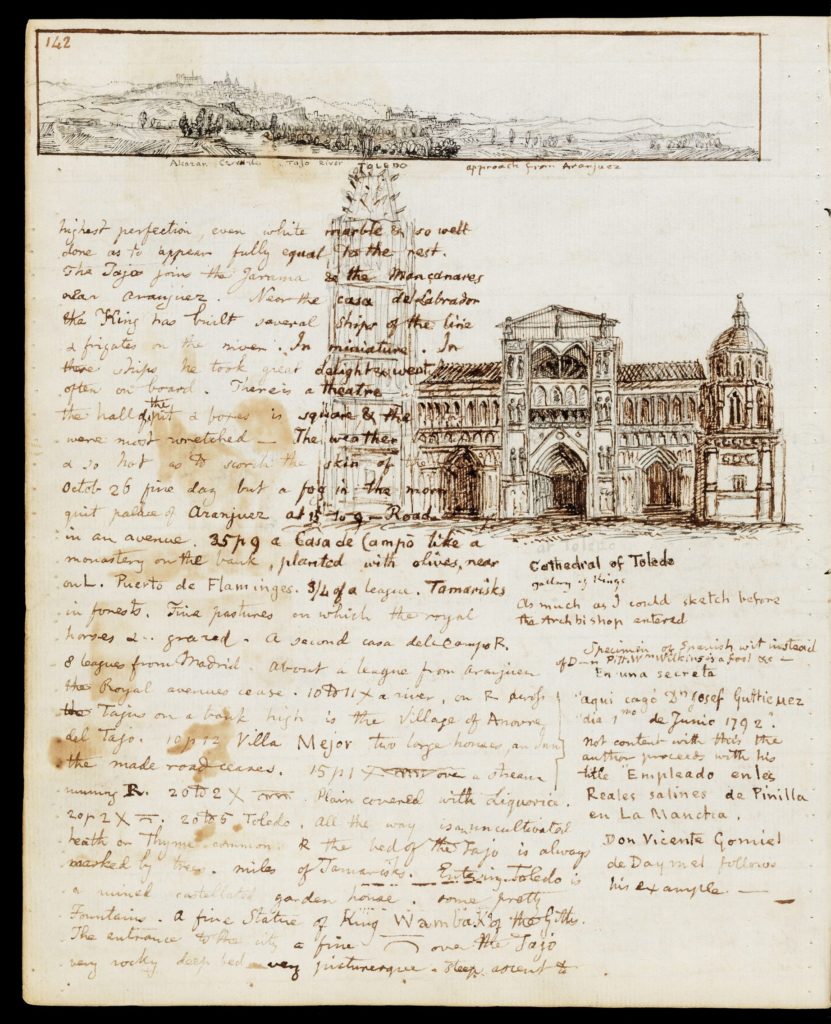 142
Alcazar Tajo River TOLEDO approach from Aranjuez
highest perfection, even white marble & so well
done as to appear fully equal to the rest.
The Tajo joins the Jarama & the Mancanares
near Aranjuez. Near the casa de Labrador
the King has built several ships of the line
& frigates on the river. In miniature. In
these ships he took great delight & went
often on board. There is a theatre
the hall the pit & boxes is square & the
were most wretched — The weather
& so hot as to scorch the skin of the
Octob 26 fine day but a fog in the morn
quit palace of Aranjuez at 15 to 9 - Road
in an avenue. 35 p 9 a Casa de Campo like a
monastery on the bank, planted with olives, near
on L. Puerto de Flamingos. 3/4 of a league. Tamarisks
in forests. Fine pastures on which the royal
horses &.. grazed. A second casa del Campo R.
8 leagues from Madrid. About a league from Aranjuez
the Royal avenues cease. 10 to 11 X a river, on R across
the Tajus on a bank high is the Village of Anovre
del Tajo. 10 p 12 Villa Mejor two large houses, an Inn
the made road ceases. 15 p 1 X over a stream
running R. 20 to 2 X Plain covered with Liquorice.
20 p 2 X 20 to 5 Toledo. All the way is an uncultivated
heath or Thyme common R the bed of the Tajo is always
marked by trees. miles of Tamarisks. Entering Toledo is
a ruined castellated garden house. some pretty
Fountains. A fine Statue of King Wamba K of the Goths.
The entrance to the city a fine over the Tajo
very rocky deep bed very picturesque. Steep ascent to
at Toledo
Cathedral of Toledo
gallery of Kings
As much as I could sketch before
the Archbishop entered
Specimen of Spanish wit instead
of D—n Pitt. Wm Wilkins is a fool &c —
En una secreta
"aqui cagó Dn Josef Guttierez
dia 1mo de Junio 1792."
not content with this the
author proceeds with his
title "Empleado en les
Reales salines de Pinilla
en La Mancha.
Don Vicente Gomiel
de Daymel follows
his example —